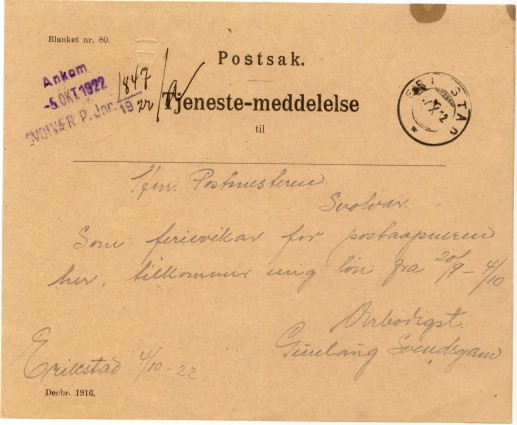 Blanket nr. 80.
Postsak.
Ankom
-5 OKT. 1922
SVOLVÆR P. Jnr.
1847
19
22
Tjeneste-meddelelse
til
Herr Postmesteren
Svolvær.
Som ferievikar for postaapneren
her, tilkommer mig løn fra 20/9 - 4/10
Ærbødigst.
Svendsgaard
Erikstad 4/10 - 22.
Decbr. 1916.